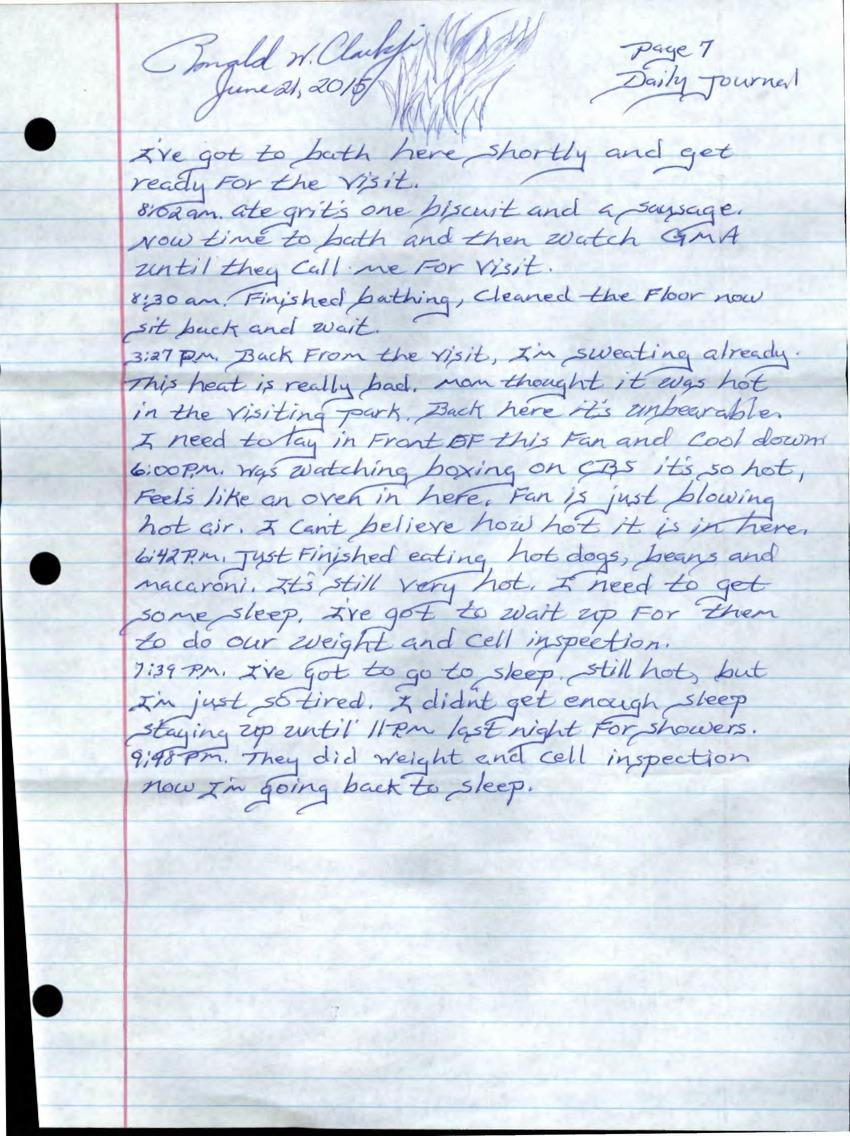 Ronald W. Clark Jr
June 21, 2015
page 7
Daily Journal
I've got to bath here shortly and get
ready For the visit.
8:02am. ate grit's one biscuit and a sausage.
Now time to bath and then watch GMA
until they Call me For Visit.
8:30 am. Finished bathing, Cleaned the Floor now
sit back and wait.
3:27 P.M. Back From the visit, I'm sweating already.
This heat is really bad. Mom thought it was hot
in the Visiting park. Back here it's unbearable.
I need to lay in Front OF this Fan and Cool down
6:00 P.M. was watching boxing on CBS it's so hot,
Feels like an oven in here. Fan is just blowing
hot air. I Can't believe how hot it is in here.
6:42 P.M. Just Finished eating hot dogs, beans and
macaroni. It's still very hot. I need to get
some sleep. I've got to wait up For them
to do our weight and Cell inspection.
7:39 P.M. I've got to go to sleep. still hot, but
I'm just so tired. I didn't get enough sleep
staying up until 11 P.M last night For showers.
9:48 P.M. They did weight and Cell inspection
now I'm going back to sleep.